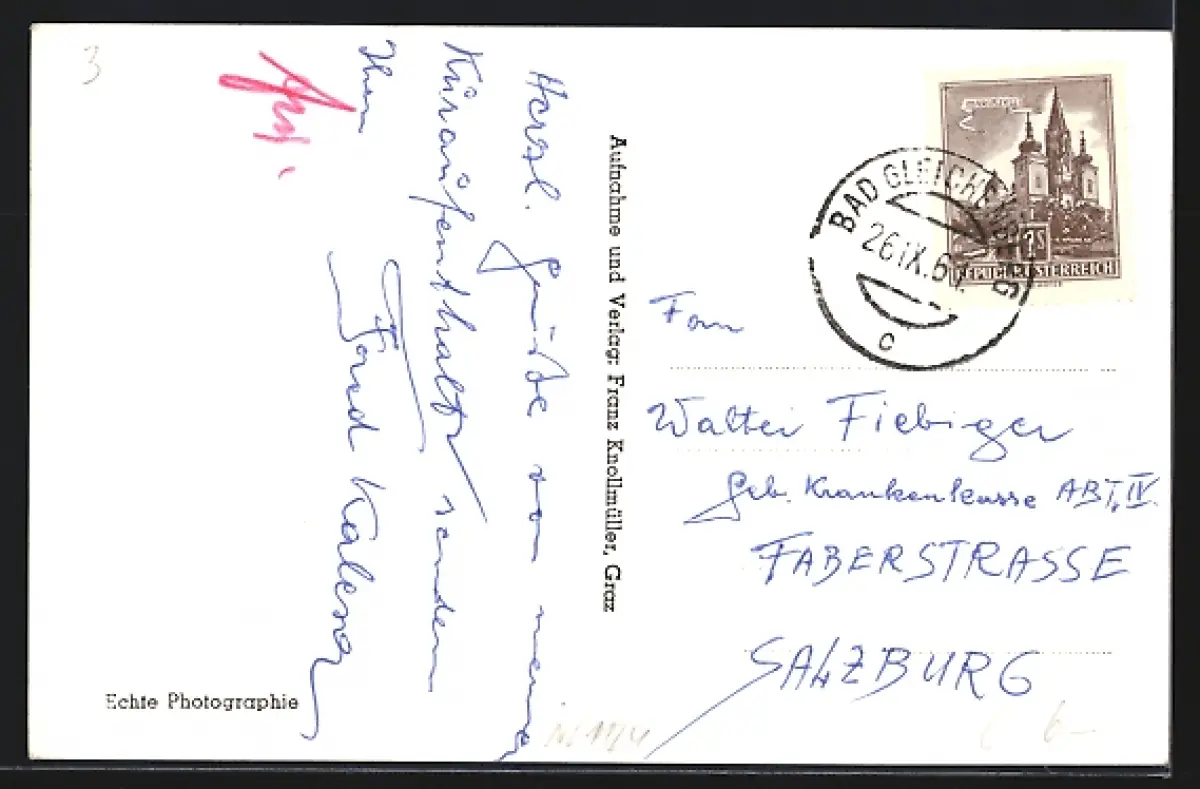 3
Herzl. Grüße von meinem
Kuraufenthalt senden
Ihnen
Fred
Aufnahme und Verlag: Franz Knollmüller, Graz
Echte Photographie
MARIAZELL
2S
REPUBLIK ÖSTERREICH
BAD GLEICHENBERG
26.IX.6
c
Walter Fiebiger
Geb. Krankenkasse ABT. IV.
FABERSTRASSE
SALZBURG
6-